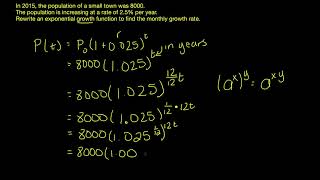 In 2015, the population of a small town was 8000.
The population is increasing at a rate of 2.5% per year.
Rewrite an exponential growth function to find the monthly growth rate.
P(t) = P₀(1+0.025)^t
t in years
= 8000(1.025)^t
= 8000(1.025)^(12/12 t)
(a^x)^y = a^xy
= 8000(1.025)^(1/12 · 12t)
= 8000(1.025^(1/12))^12t
= 8000(1.00